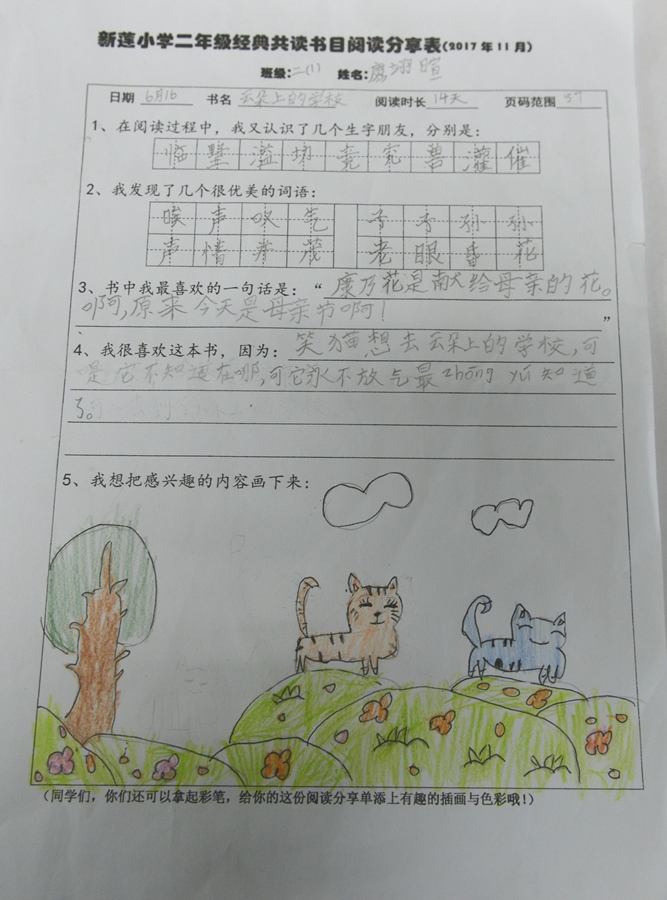 新莲小学二年级经典共读书目阅读分享表(2017年11月)
班级:二(1) 姓名:廖翊暄
日期 6月16 书名 云朵上的学校 阅读时长 14天 页码范围 37
1、在阅读过程中，我又认识了几个生字朋友，分别是:
临 墅 滥 坊 竞 究 兽 灌 催
2、我发现了几个很优美的词语:
唉 声 叹 气 子 子 孙 孙
声 情 并 茂 老 眼 昏 花
3、书中我最喜欢的一句话是:“康乃花是献给母亲的花。
啊,原来今天是母亲节啊! ”
4、我很喜欢这本书，因为:笑猫想去云朵上的学校,可
是它不知道在哪,可它永不放气最zhōng yú知道
了。
5、我想把感兴趣的内容画下来:
(同学们，你们还可以拿起彩笔，给你的这份阅读分享单添上有趣的插画与色彩哦!)